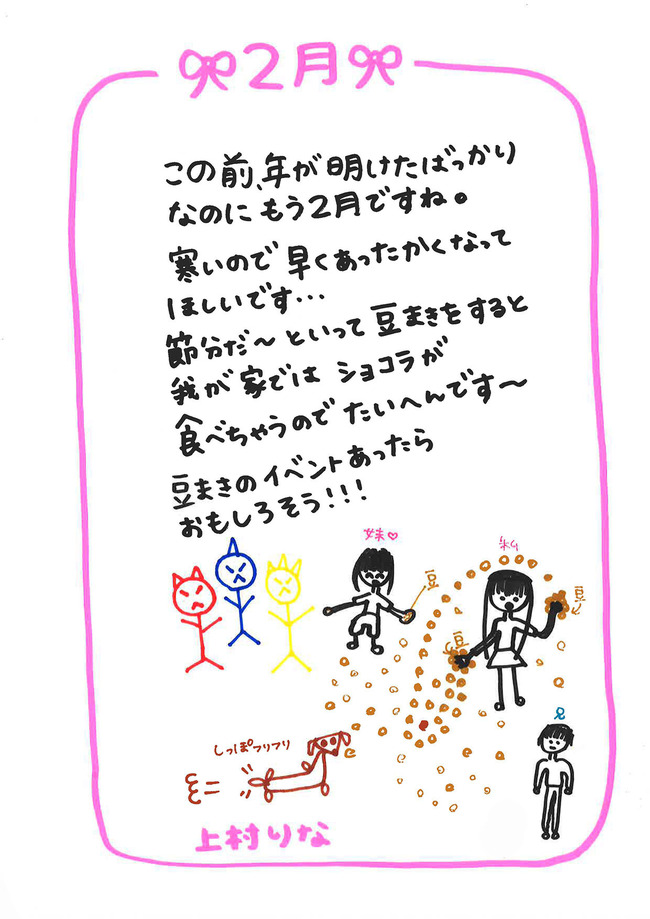 2月
この前、年が明けたばっかり
なのにもう2月ですね。
寒いので早くあったかくなって
ほしいです…
節分だ〜といって豆まきをすると
我が家ではショコラが
食べちゃうのでたいへんです〜
豆まきのイベントあったら
おもしろそう!!!
妹♡
私
豆
豆
豆
兄
しっぽフリフリ
上村りな